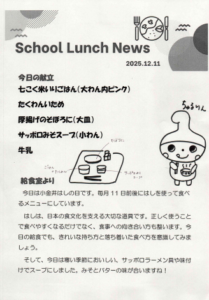 School Lunch News
2025.12.11
今日の献立
七こく米いりごはん(大わん内ピンク)
たくわんいため
厚揚げのそぼろに(大皿)
サッポロみそスープ(小わん)
牛乳
ちゅるりん
給食室より
今日は小金井はしの日です。毎月11日前後にはしを使って食べ
るメニューにしています。
はしは、日本の食文化を支える大切な道具です。正しく使うこと
で食べやすくなるだけでなく、食事への向き合い方も整います。今
日の給食でも、きれいな持ち方と落ち着いた食べ方を意識してみま
しょう。
そして、今日は寒い季節においしい、サッポロラーメン真や味付
けでスープにしました。みそとバターの味が合いますね!